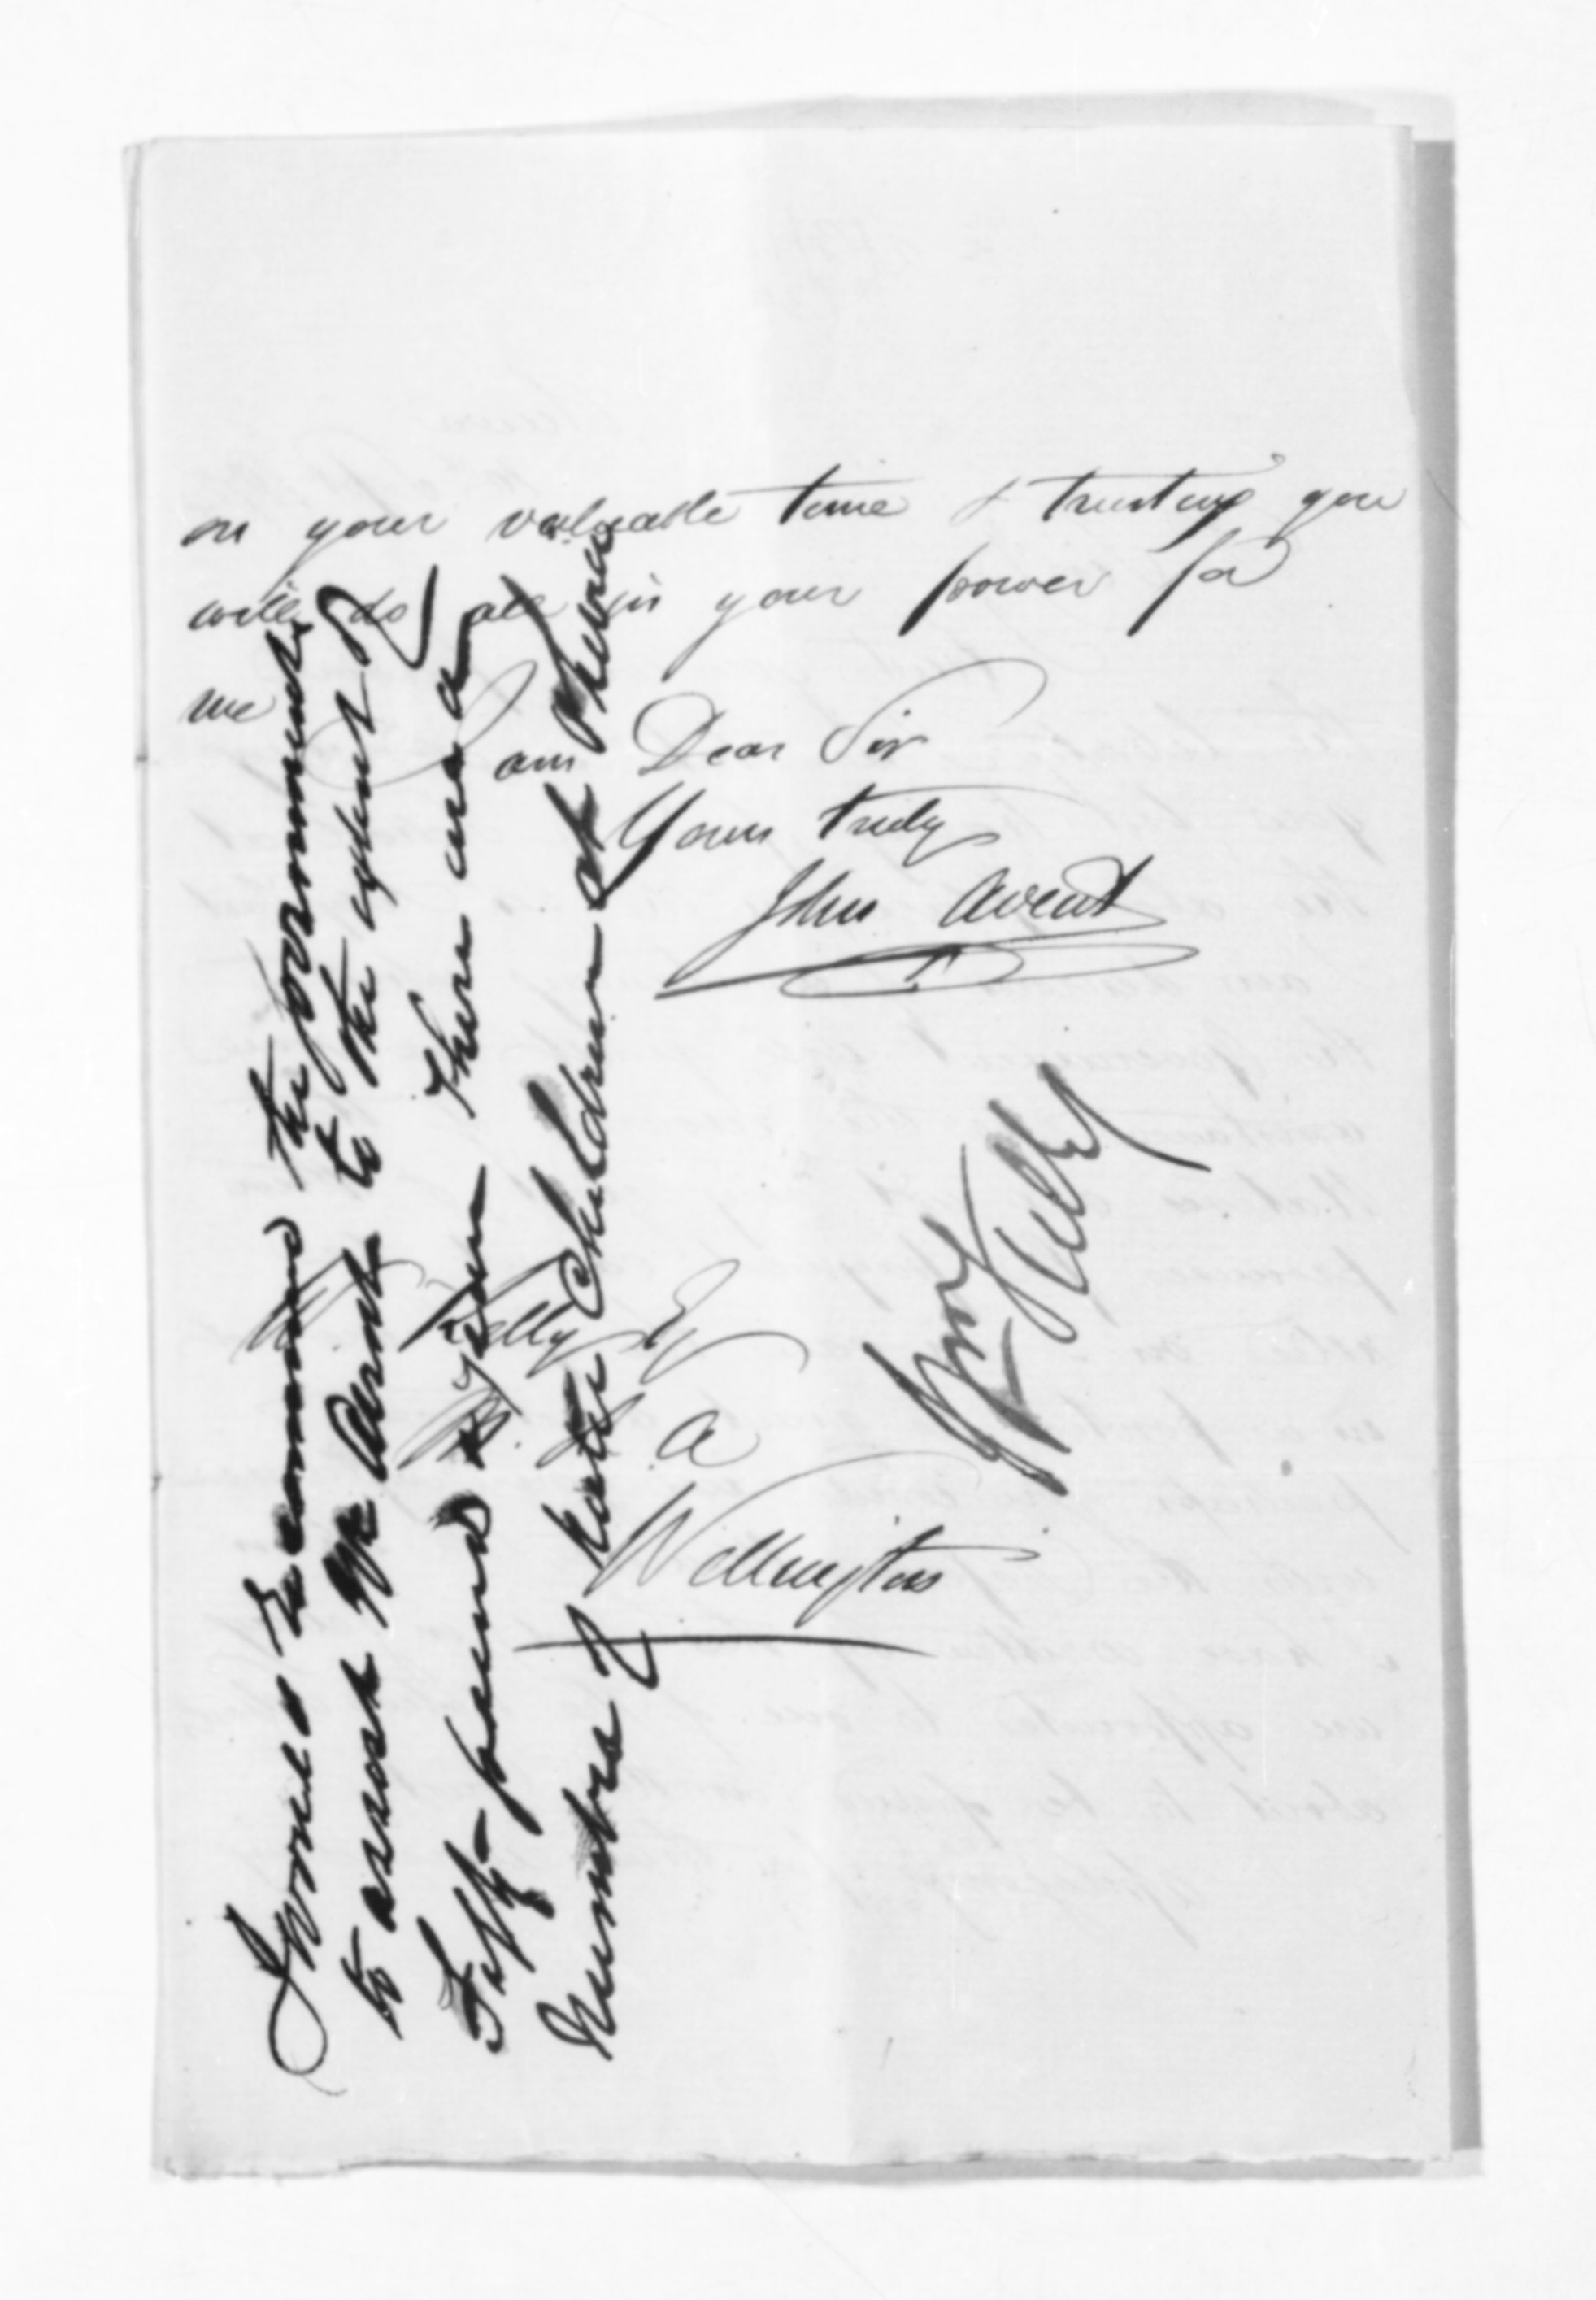 on your valuable time & trusting you
will do all in your power for
me
I am Dear Sir
Yours truly
John Avent
W. Kelly Esq
M. G. A
Wellington
I would recommend the government
to assist Mr Avent to the extent of
Fifty pounds a year There are a
Number of Native Children at
Wm Kelly